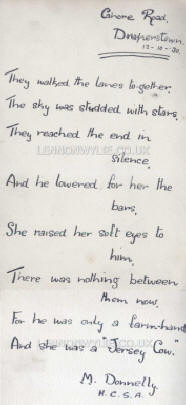 Cahore Road,
Draperstown.
12-10-30.
They walked the lanes together,
The sky was studded with stars,
They reached the end in
silence,
LENNONWYLIE.CO.UK
And he lowered for her the
bars,
She raised her soft eyes to
him,
There was nothing between
them now,
LENNONWYLIE.CO.UK
For he was only a farm-hand
And she was a "Jersey Cow."
M. Donnelly
H.C.S.A.